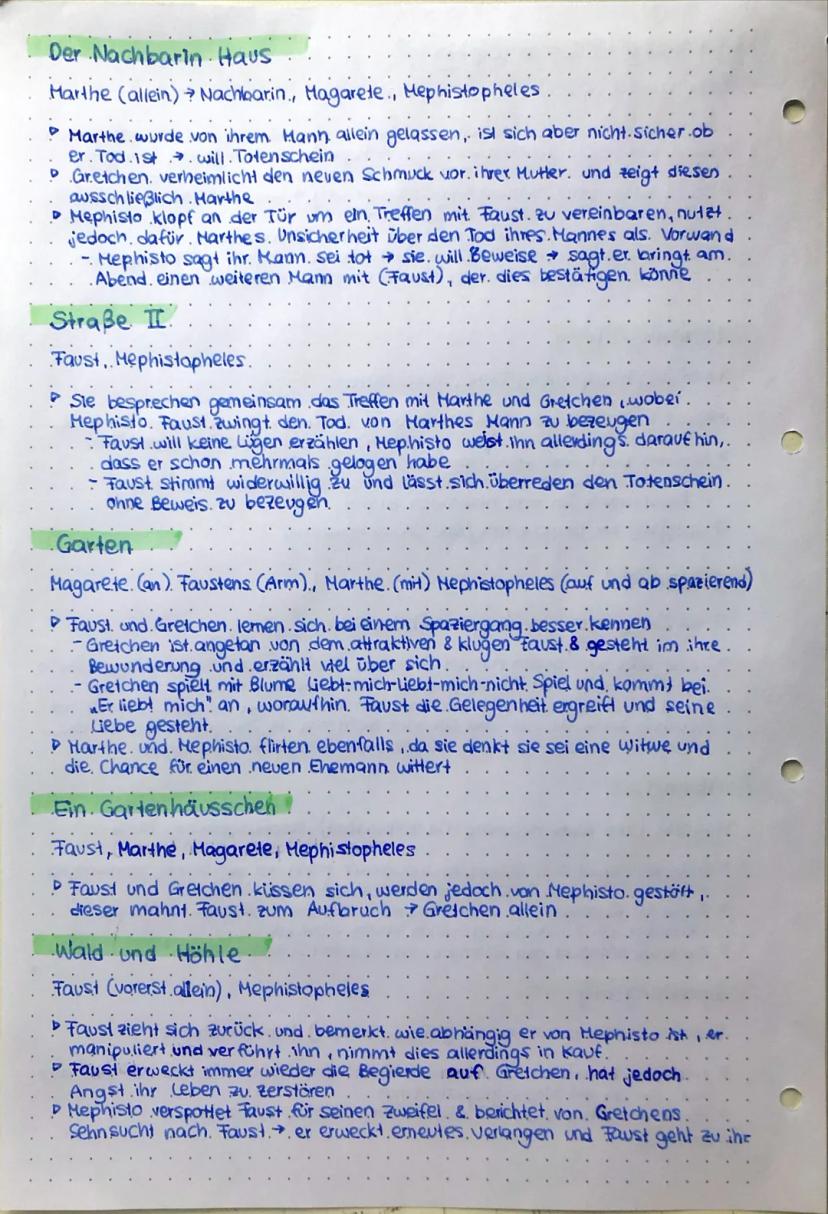 Der Nachbarin Haus
Marthe (allein) → Nachbarin, Magarete, Mephistopheles
▷ Marthe wurde von ihrem Mann allein gelassen, ist sich aber nicht sicher ob
er Tod ist → will Totenschein
▷ Gretchen verheimlicht den neuen Schmuck vor ihrer Mutter und zeigt diesen
ausschließlich Marthe
▷ Mephisto klopf an der Tür um ein Treffen mit Faust zu vereinbaren, nutzt
jedoch dafür Marthes Unsicherheit über den Tod ihres Mannes als Vorwand
- Mephisto sagt ihr Mann sei tot → sie will Beweise → sagt er bringt am
Abend einen weiteren Mann mit (Faust), der dies bestätigen könne
Straße II
Faust, Mephistopheles
▷ Sie besprechen gemeinsam das Treffen mit Marthe und Gretchen, wobei
Mephisto Faust zwingt den Tod von Marthes Mann zu bezeugen
- Faust will keine Lügen erzählen, Mephisto weist ihn allerdings darauf hin,
dass er schon mehrmals gelogen habe
- Faust stimmt widerwillig zu und lässt sich überreden den Totenschein
ohne Beweis zu bezeugen
Garten
Magarete (an) Faustens (Arm), Marthe (mit) Mephistopheles (auf und ab spazierend)
▷ Faust und Gretchen lernen sich bei einem Spaziergang besser kennen
- Gretchen ist angetan von dem attraktiven & klugen Faust & gesteht im ihre
Bewunderung und erzählt viel über sich
- Gretchen spielt mit Blume liebt-mich-liebt-mich-nicht Spiel und kommt bei
„Er liebt mich" an, woraufhin Faust die Gelegenheit ergreift und seine
Liebe gesteht
▷ Marthe und Mephisto flirten ebenfalls, da sie denkt sie sei eine Witwe und
die Chance für einen neuen Ehemann wittert
Ein Gartenhäusschen
Faust, Marthe, Magarete, Mephistopheles
▷ Faust und Gretchen küssen sich, werden jedoch von Mephisto gestört,
dieser mahnt Faust zum Aufbruch → Gretchen allein
Wald und Höhle
Faust (vorerst allein), Mephistopheles
▷ Faust zieht sich zurück und bemerkt wie abhängig er von Mephisto ist, er
manipuliert und verführt ihn, nimmt dies allerdings in Kauf
▷ Faust erweckt immer wieder die Begierde auf Gretchen, hat jedoch
Angst ihr Leben zu zerstören
▷ Mephisto verspottet Faust für seinen Zweifel & berichtet von Gretchens
Sehnsucht nach Faust → er erweckt erneutes Verlangen und Faust geht zu ihr